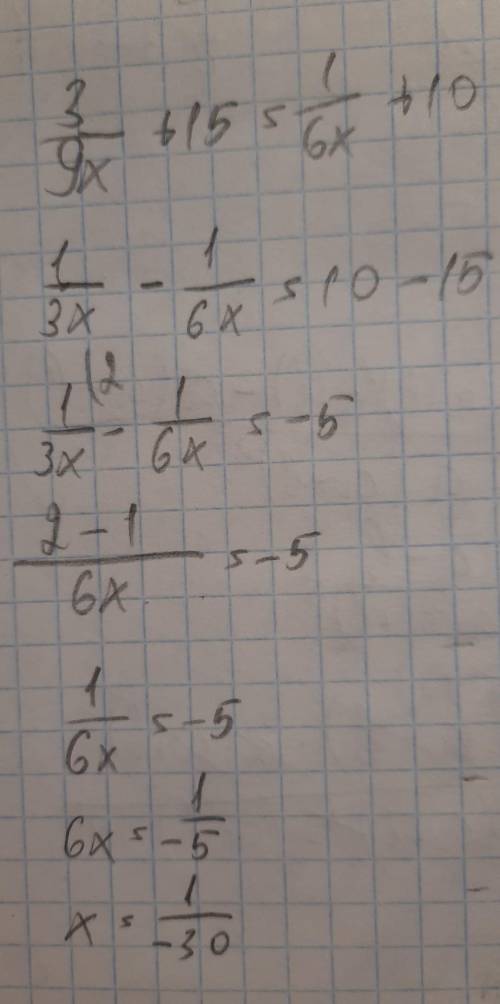 3/9x + 15 = 1/6x + 10
1/3x - 1/6x = 10 - 15
1/3x (2 - 1/6x = -5
2 - 1/6x = -5
1/6x = -5
6x = 1/-5
x = 1/-30